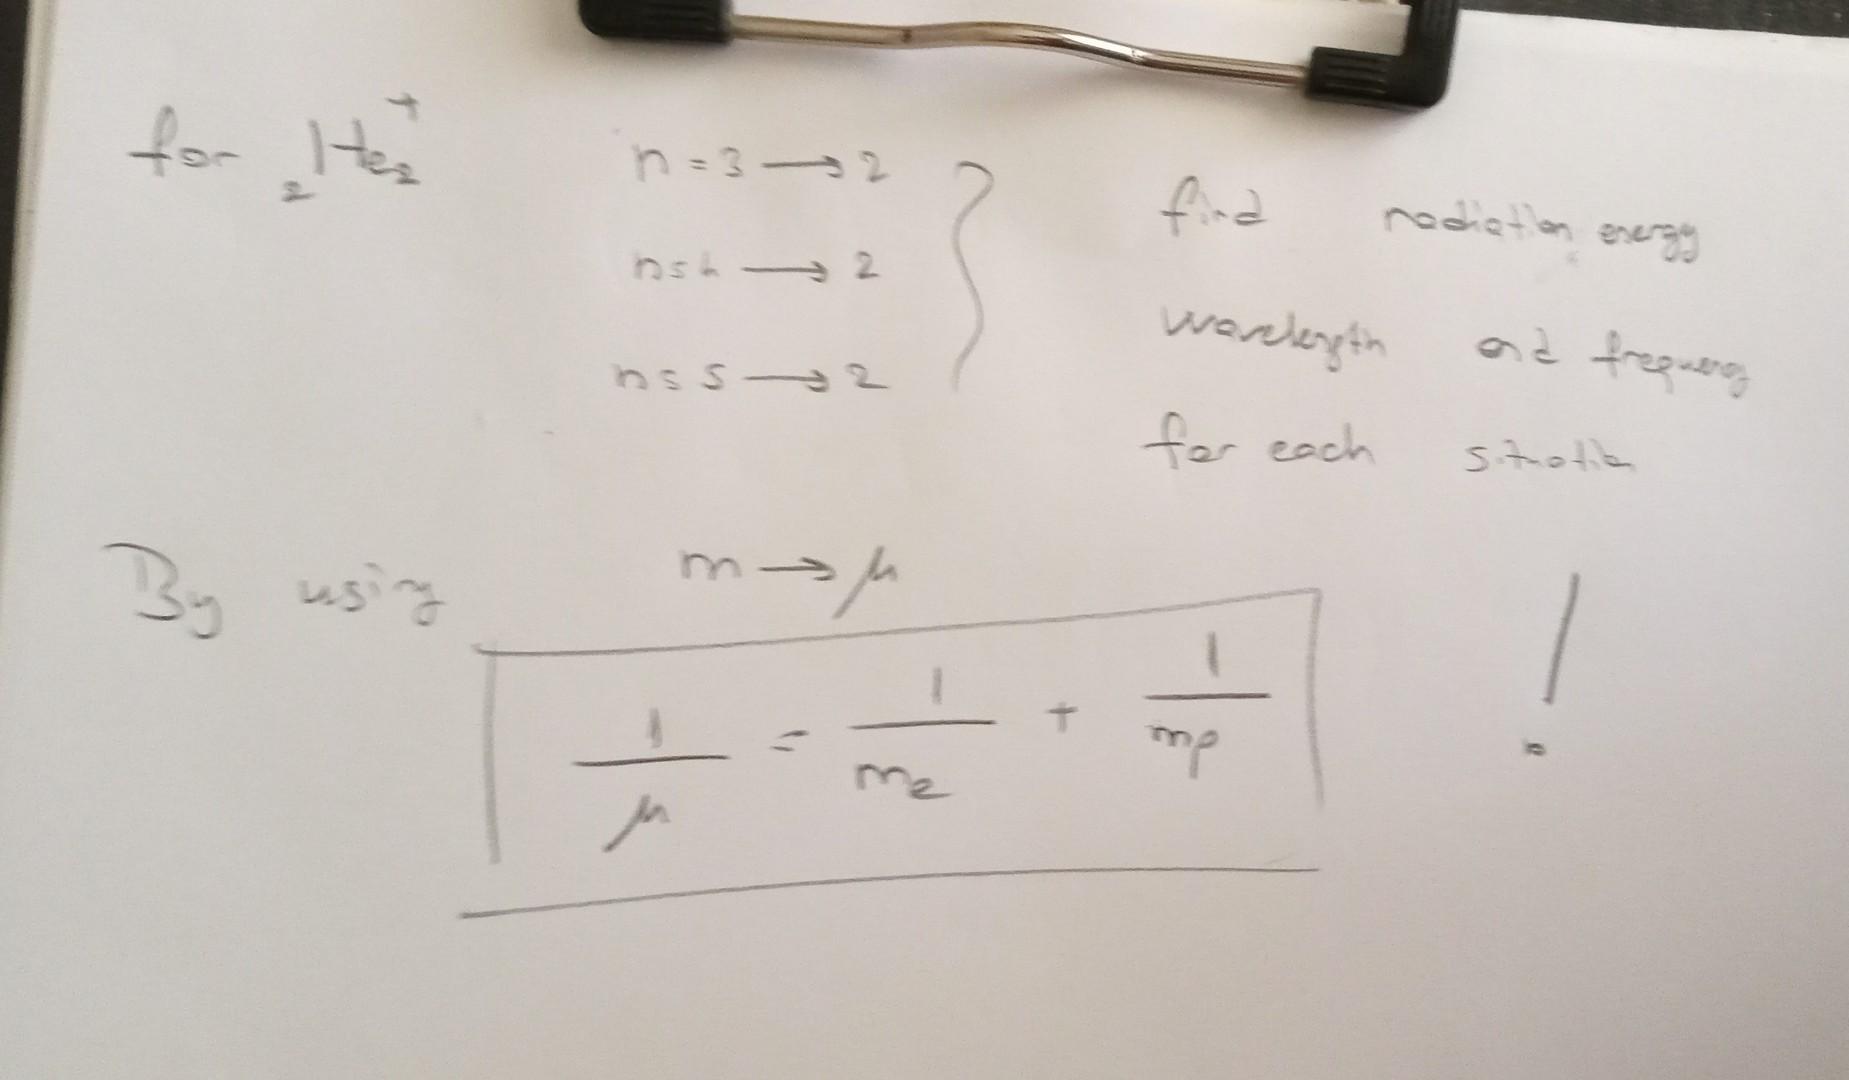 for ₂He₂⁺ n = 3 → 2
n = 4 → 2
n = 5 → 2
find radiation energy
wavelength and frequency
for each situation
By using m → μ
1/μ = 1/me + 1/mp !